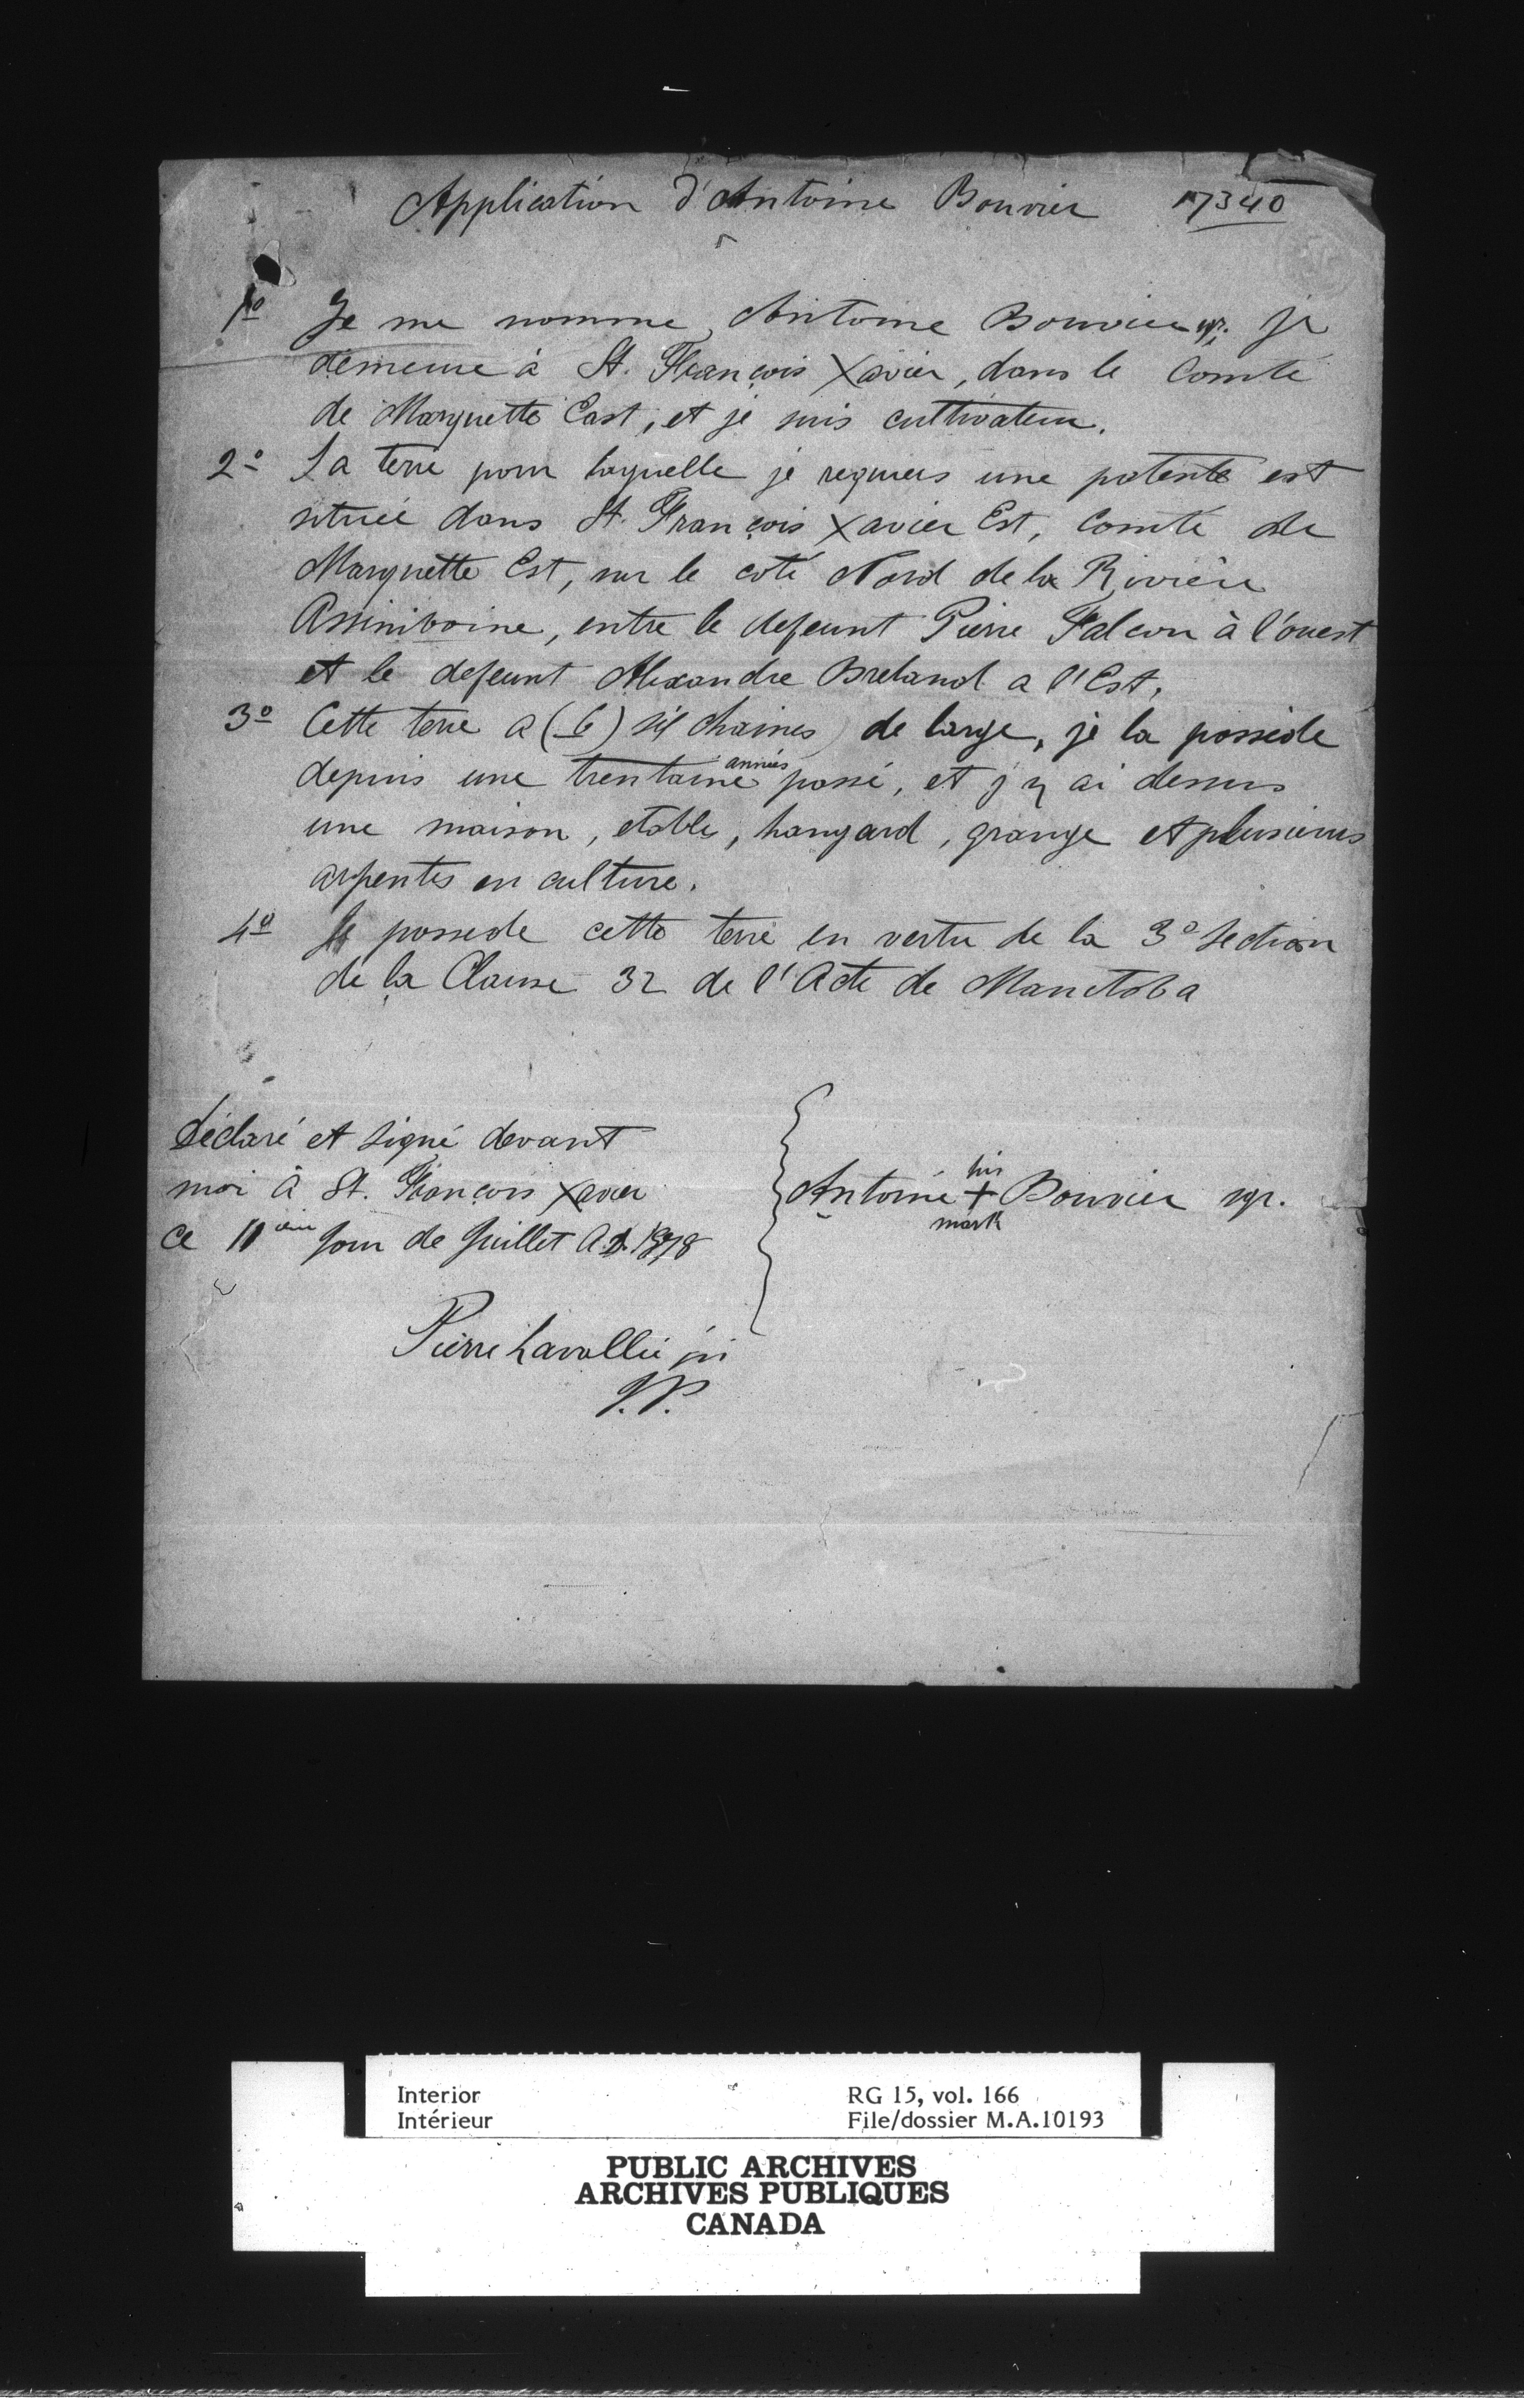 Application d'Antoine Bouvier 17340
1º Je me nomme, Antoine Bouvier sgr. je
demeure à St. François Xavier, dans le Comté
de Marquette East, et je suis cultivateur.
2º La terre pour laquelle je requiers une patente est
située dans St. François Xavier Est, Comté de
Marquette Est, sur le coté Nord de la Rivière
Assiniboine, entre le defeunt Pierre Falcon à l'ouest
et le defeunt Alexandre Breland a l'Est.
3º Cette terre a (6) six chaines de large, je la possède
depuis une trentaine années passé, et j'y ai dessus
une maison, etable, hangard, grange et plusieurs
arpentes en culture.
4º Je possede cette terre en vertu de la 3º Section
de la Clause 32 de l'Acte de Manitoba
Déclaré et signé devant
moi à St. François Xavier
ce 11ème jour de Juillet A.D. 1878
Antoine his + mark Bouvier sgr.
Pierre Lavallée jr
J.P.
Interior
Intérieur
RG 15, vol. 166
File/dossier M.A.10193
PUBLIC ARCHIVES
ARCHIVES PUBLIQUES
CANADA